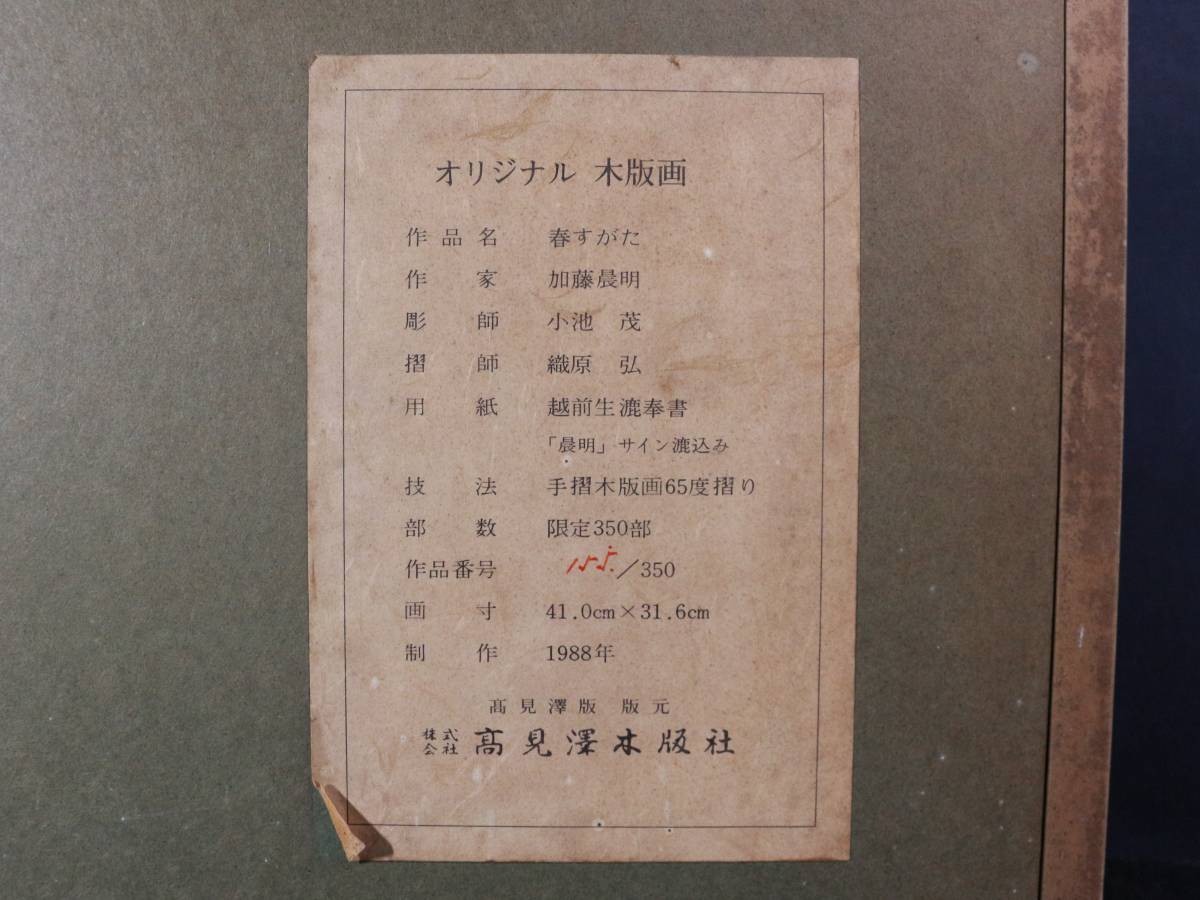 オリジナル 木版画
作品名 春すがた
作家 加藤晨明
彫師 小池 茂
摺師 織原 弘
用紙 越前生漉奉書
「晨明」サイン漉込み
技法 手摺木版画65度摺り
部数 限定350部
作品番号 155/350
画寸 41.0cm×31.6cm
制作 1988年
髙見澤版 版元
株式会社 髙見澤木版社